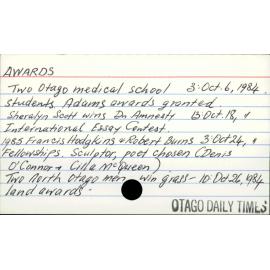 AWARDS
Two Otago medical school 3: Oct. 6, 1984.
students Adams awards granted
Sheralyn Scott wins Dn Amnesty 13: Oct. 18, "
International Essay Contest.
1985 Francis Hodgkins & Robert Burns 3: Oct 24, "
Fellowships. Sculptor, poet chosen (Denis
O'Connor & Cilla McQueen)
Two North Otago men win grass- 10: Oct 26, 1984
land awards.
OTAGO DAILY TIMES